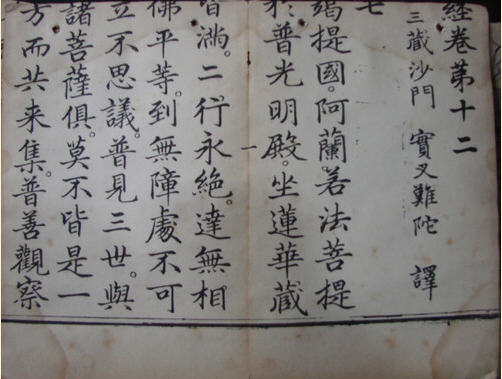 經卷第十二
三藏沙門 實叉難陀 譯
七
竭提國。阿蘭若法菩提
於普光明殿。坐蓮華藏
一
皆滿。二行永絕。達無相
佛平等。到無障處不可
立不思議。普見三世。與
諸菩薩俱。莫不皆是一
方而共来集。普善觀察